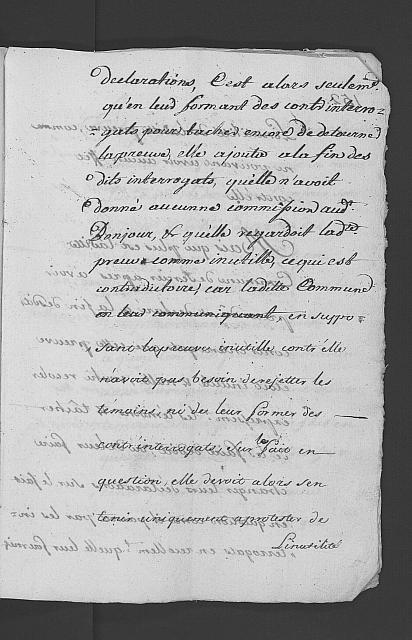 declarations, C'est alors seulem.t
qu'en leud formant des contd interro=
=gats pour tached encore de detourned
la preuve, elle ajouta a la fin des
dits interrogats, qu'elle n'avoit
donné aucunne commission aud.
Bonjour, & qu'elle regardoit lad.
preuve comme inutille, ce qui est
contradictoire, car ladite Commune
en leud communiquant en suppo=
sant la preuve inutille contr'elle
n'avoit pas besoin de rejetter les
temoins, ni de leur former des
contr'interrogats, sur fait en
question, elle devoit alors s'en
tenir uniquement a protester de
L'inutilité